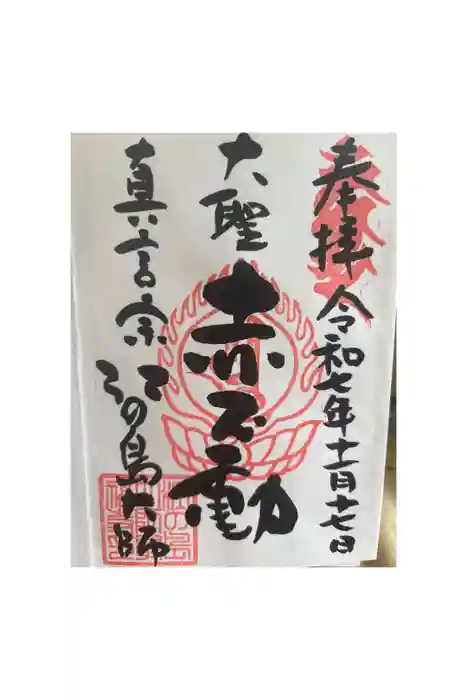 奉拝
令和七年十一月十七日
大聖
赤不動
真言宗
江の島大師